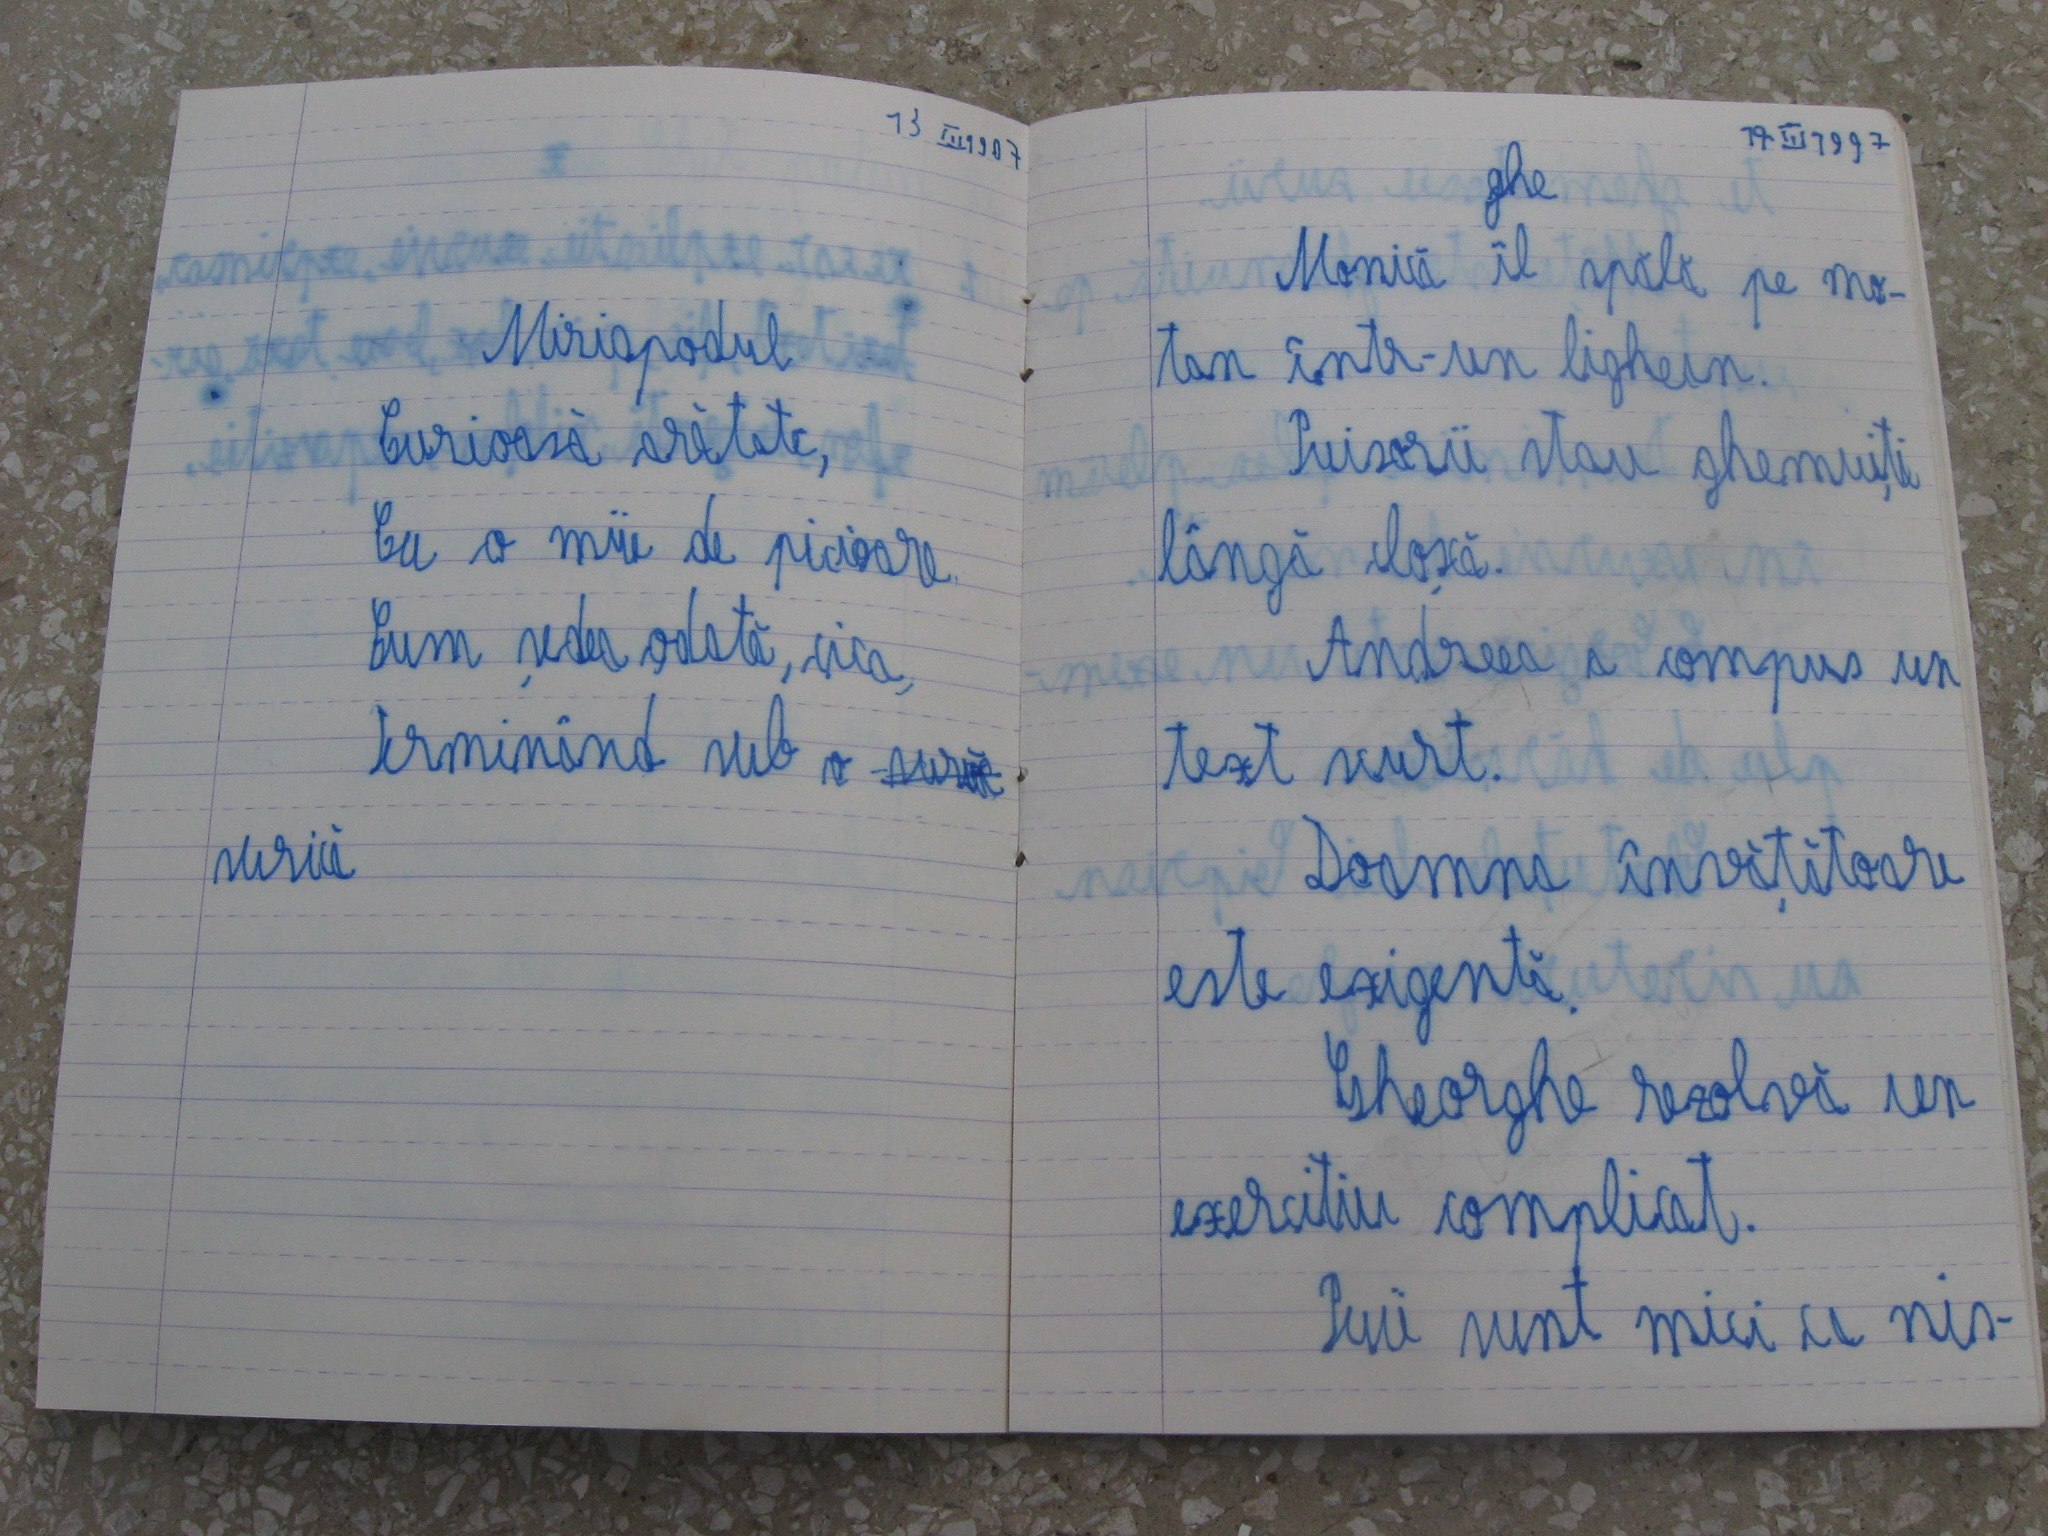 13 III 1997
Miriapodul
Curioasă arătate,
Cu o mie de picioare.
Cum ședea odată, cica,
terminând sub o
urică
17 III 1997
ghe
Monică îl spălă pe mo-
tan într-un lighean.
Puișorii stau ghemuiți
lângă cloșcă.
Andreea a compus un
text scurt.
Doamna învățătoare
este exigentă.
Gheorghe rezolvă un
exercitiu complicat.
Puii sunt mici ca nis-